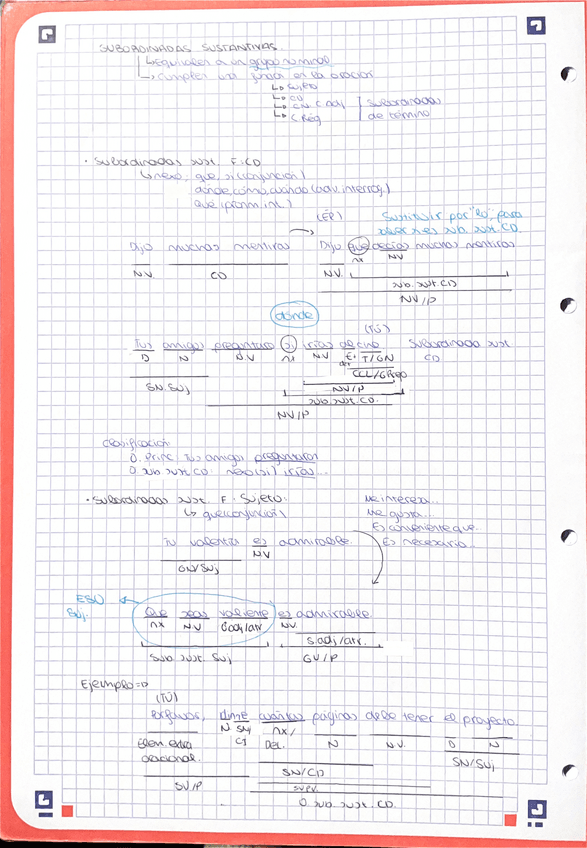 SUBORDINADAS SUSTANTIVAS.
↳ equivalen a un grupo nominal
↳ cumplen una función en la oración
↳ Sujeto
↳ CD
↳ CN, C adj | Subordinadas
↳ C Rég | de término
· Subordinadas sust. F: CD
↳ nexo: que, si (conjunción)
dónde, cómo, cuándo (adv. interrog.)
qué (pronm. int.)
(ÉP) Sustituir por "lo", para
saber si es sub. sust. CD.
Dijo muchas mentiras Dijo que decías muchas mentiras
N.V. CD N.V. nx NV
sub. sust. CD
NV/P
dónde
(TÚ)
Tus amigos preguntaron si irías al cine Subordinada sust
D N N.V nx N.V E. T/GN CD
SN. Suj CCL/C Rég
NV/P
sub. sust. CD.
NV/P
Clasificación
O. Princ. Tus amigos preguntaron
O. sub sust CD. nexo (si) irías...
· Subordinadas sust. F. Sujeto: Me interesa...
↳ que (conjunción) Me gusta...
Es conveniente que...
Tu valentía es admirable. Es necesario...
NV
GN/Suj
ESU
Suj. Que seas valiente es admirable.
nx N.V S.adj/atr NV.
S.adj/atr.
Sub. sust. Suj GV/P
Ejemplo⇒
(TÚ)
Porfavor, dime cuántas páginas debe tener el proyecto.
N CI nx/ Det. N N.V. D N
Elem. extra
oracional. SN/Suj
SN/CD
SV/P
O. sub. sust. CD.